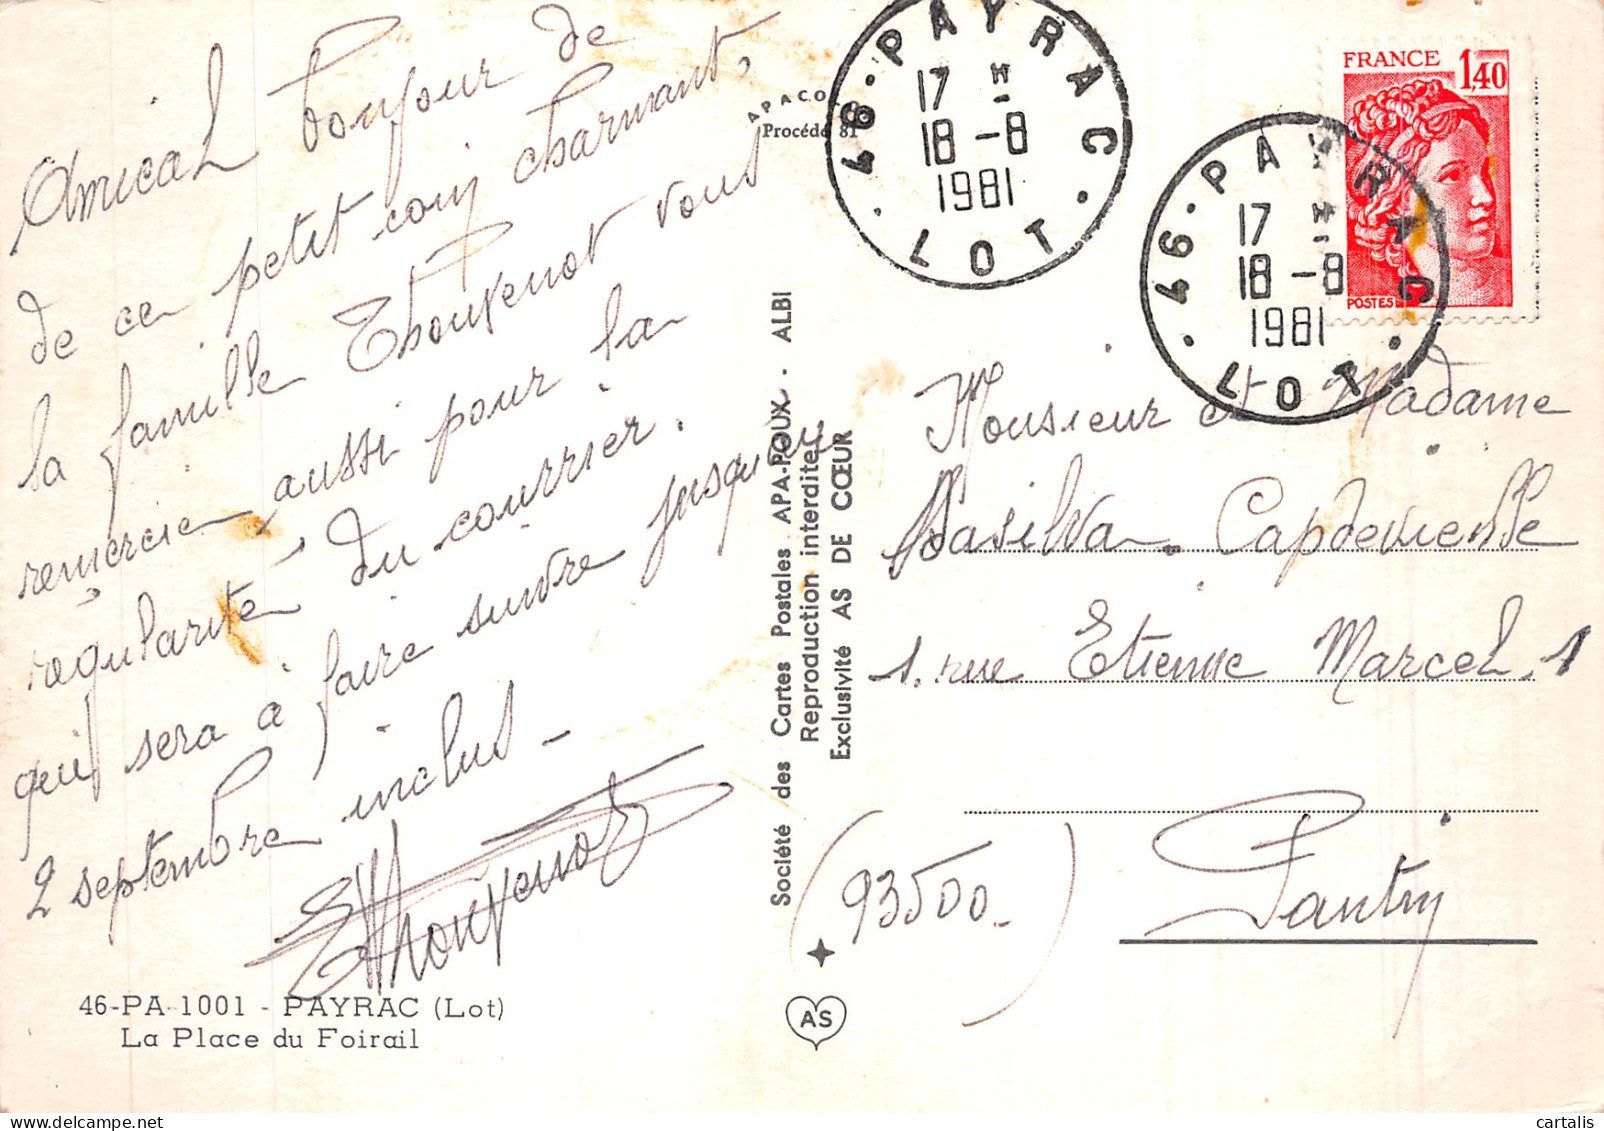 Amical bonjour de
de ce petit coin charmant,
la famille Thouvenot vous
remercie, aussi pour la
regularité du courrier.
qui sera à faire suivre jusqu'au
2 septembre inclus -
Thouvenot
46-PA-1001 - PAYRAC (Lot)
La Place du Foirail
APACOL
Procédé 81
Société des Cartes Postales APA-POUX - ALBI
Reproduction interdite
Exclusivité AS DE CŒUR
AS
46 - PAYRAC
17 H
18 -8
1981
LOT
46 - PAYRAC
17 H
18 -8
1981
LOT
FRANCE 1,40
POSTES
Monsieur et Madame
Dasilva. Capdevielle
1. rue Etienne Marcel. 1
(93500.) Pantin
cartalis | www.delcampe.net